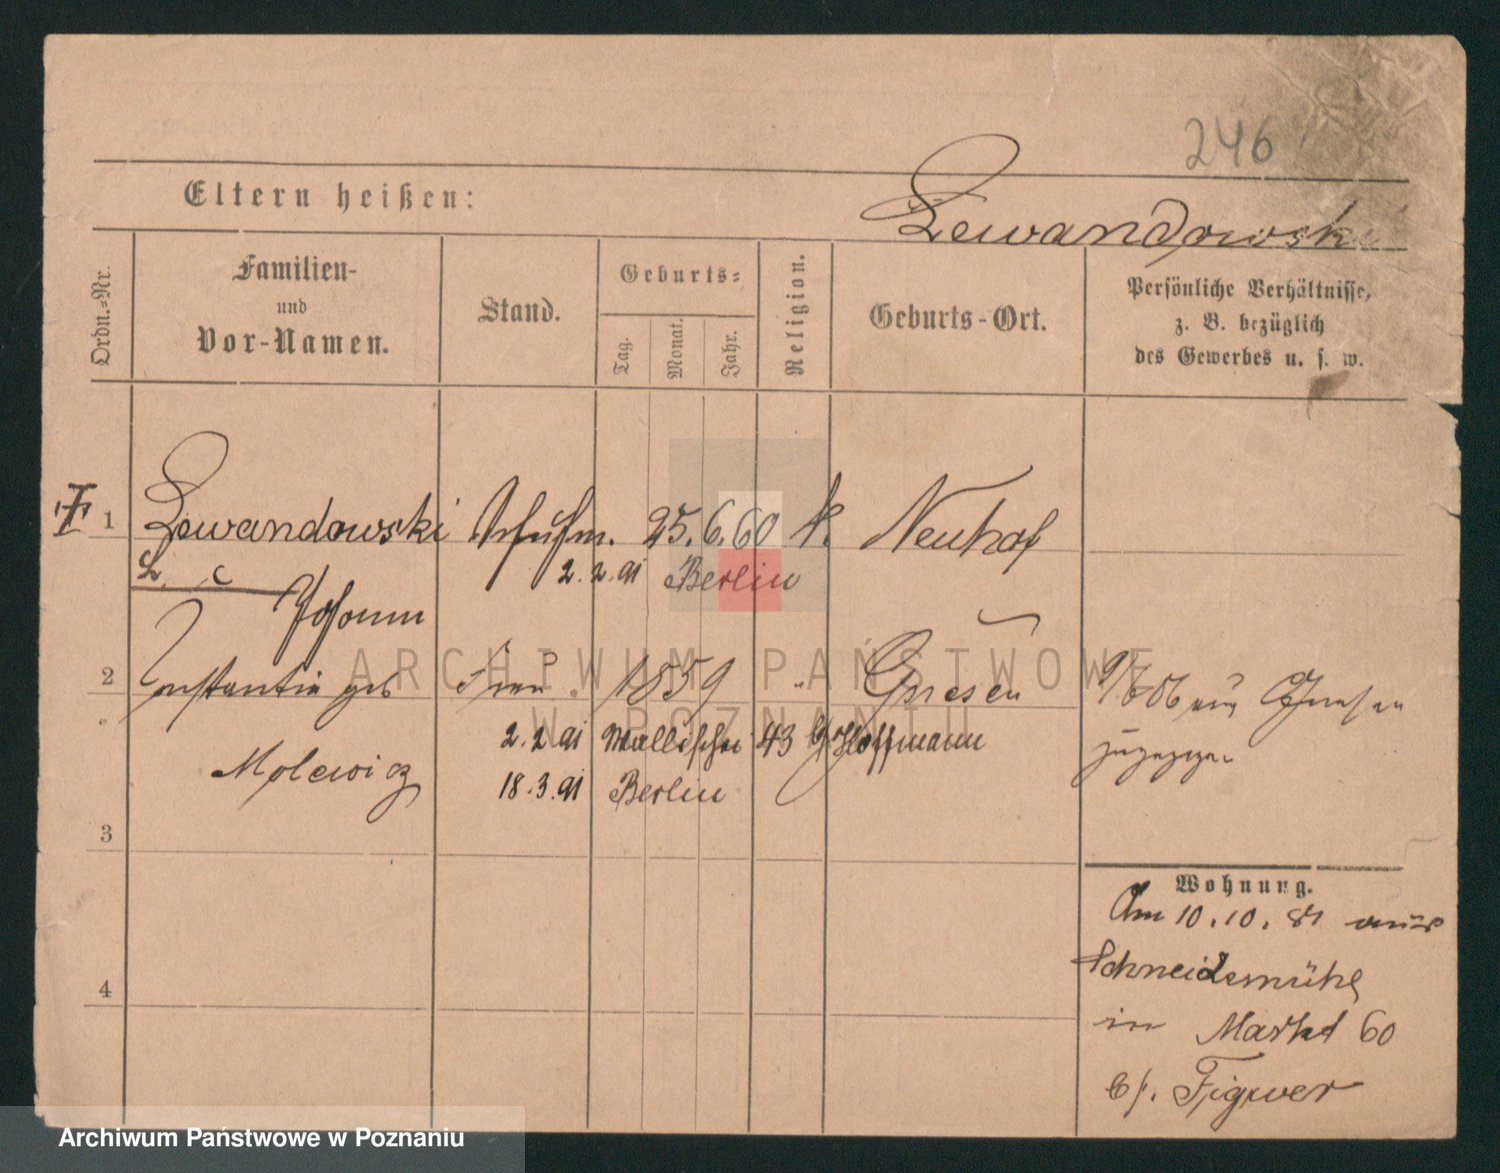 246
Eltern heißen:
Lewandowski
Ordn.=Nr.
Familien-
und
Vor-Namen.
Stand.
Geburts=
Tag.
Monat.
Jahr.
Religion.
Geburts-Ort.
Persönliche Verhältnisse,
z. B. bezüglich
des Gewerbes u. s. w.
1 Lewandowski Schuhm. 25. 6. 60 k. Neuhof
2. 2. 91 Berlin
Johann
2 Constantia geb Frau 1859 " Gnesen
Molewicz
2. 2 91 Wallischei 43 b/ Hoffmann
18. 3. 91 Berlin
aus Gnesen
zugezogen
3
4
Wohnung.
Am 10. 10. 81 aus
Schneidemühl
in Markt 60
b/. Figwer
ARCHIWUM PAŃSTWOWE
W POZNANIU
Archiwum Państwowe w Poznaniu